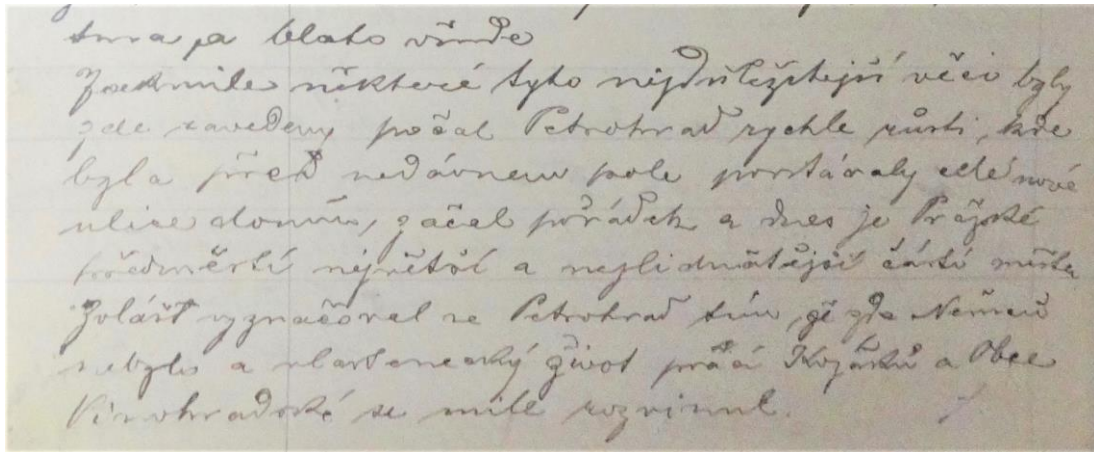 tma a blato všude
Jakmile některé tyto nejdůležitější věci byly
zde zavedeny počal Petrohrad rychle růsti, kde
byla před nedávnem pole povstávaly celé nové
ulice domů, začal pořádek a dnes je Pražské
předměstí největší a nejlidnatější částí města
Zvlášť vyznačoval se Petrohrad tím, že zde Němců
nebylo a vlastenecký život prací Kozáků a Obce
Vinohradské se mile rozvinul.